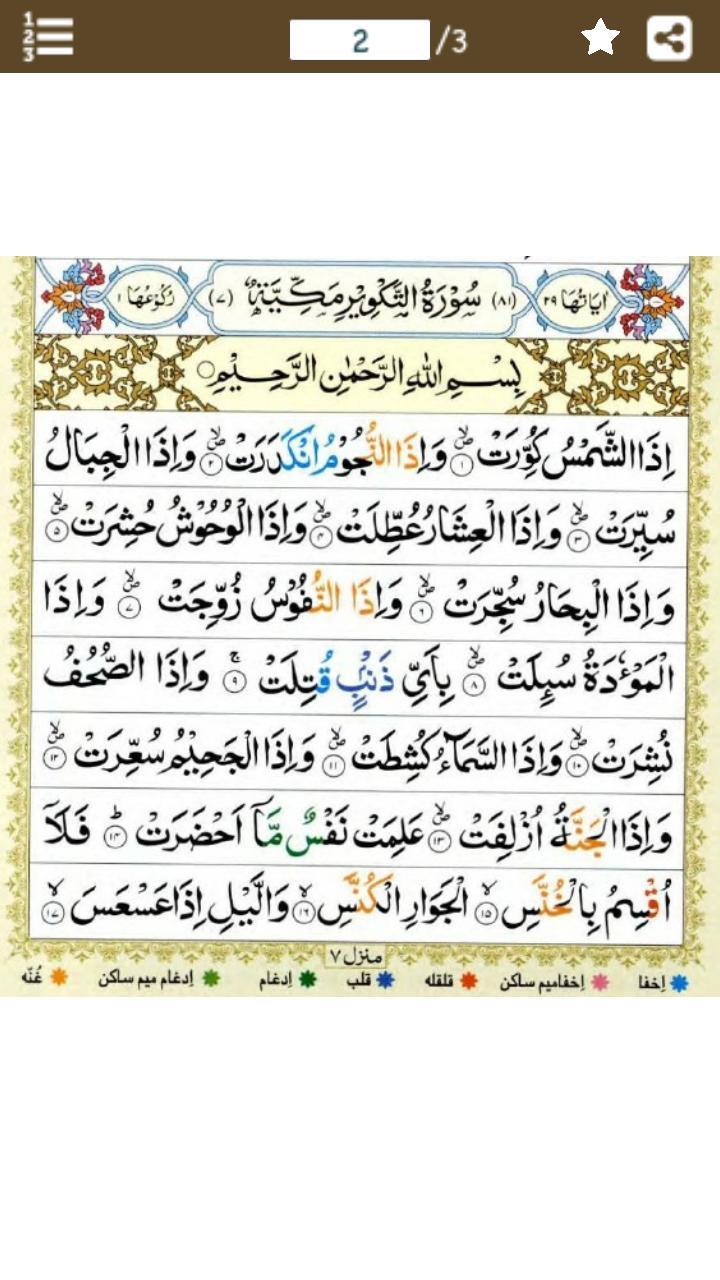 1
2
3
2 /3
اٰیَاتُهَا ۲۹ (۸۱) سُوْرَةُ التَّكْوِيْرِ مَكِّيَّةٌ (۷) رُكُوْعُهَا ۱
بِسْمِ اللّٰهِ الرَّحْمٰنِ الرَّحِيْمِ ○
اِذَا الشَّمْسُ كُوِّرَتْ ۙ﴿۱﴾ وَاِذَا النُّجُوْمُ انْكَدَرَتْ ۙ﴿۲﴾ وَاِذَا الْجِبَالُ
سُيِّرَتْ ۙ﴿۳﴾ وَاِذَا الْعِشَارُ عُطِّلَتْ ۙ﴿۴﴾ وَاِذَا الْوُحُوْشُ حُشِرَتْ ۙ﴿۵﴾
وَاِذَا الْبِحَارُ سُجِّرَتْ ۙ﴿۶﴾ وَاِذَا النُّفُوْسُ زُوِّجَتْ ۙ﴿۷﴾ وَاِذَا
الْمَوْءٗدَةُ سُئِلَتْ ۙ﴿۸﴾ بِاَيِّ ذَنْۢبٍ قُتِلَتْ ۚ﴿۹﴾ وَاِذَا الصُّحُفُ
نُشِرَتْ ۙ﴿۱۰﴾ وَاِذَا السَّمَآءُ كُشِطَتْ ۙ﴿۱۱﴾ وَاِذَا الْجَحِيْمُ سُعِّرَتْ ۙ﴿۱۲﴾
وَاِذَا الْجَنَّةُ اُزْلِفَتْ ۙ﴿۱۳﴾ عَلِمَتْ نَفْسٌ مَّاۤ اَحْضَرَتْ ؕ﴿۱۴﴾ فَلَاۤ
اُقْسِمُ بِالْخُنَّسِ ۙ﴿۱۵﴾ الْجَوَارِ الْكُنَّسِ ۙ﴿۱۶﴾ وَالَّيْلِ اِذَا عَسْعَسَ ۙ﴿۱۷﴾
منزل ۷
اِخفا اِخفامیم ساکن قلقله قلب اِدغام اِدغام میم ساکن غُنّه